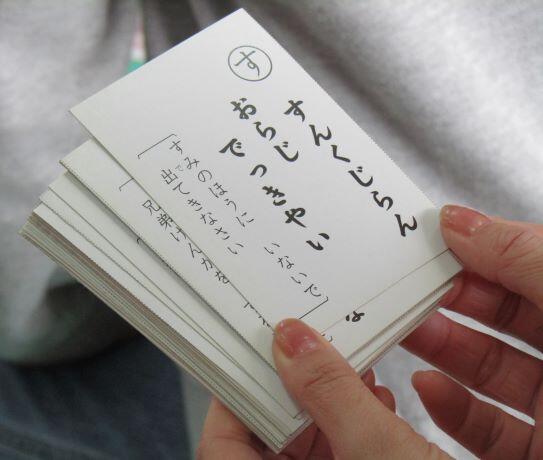 す
すんくじらん
おらじ
でっきやい
すみのほうに
いないで
出てきなさい
で
兄弟げんかを
な